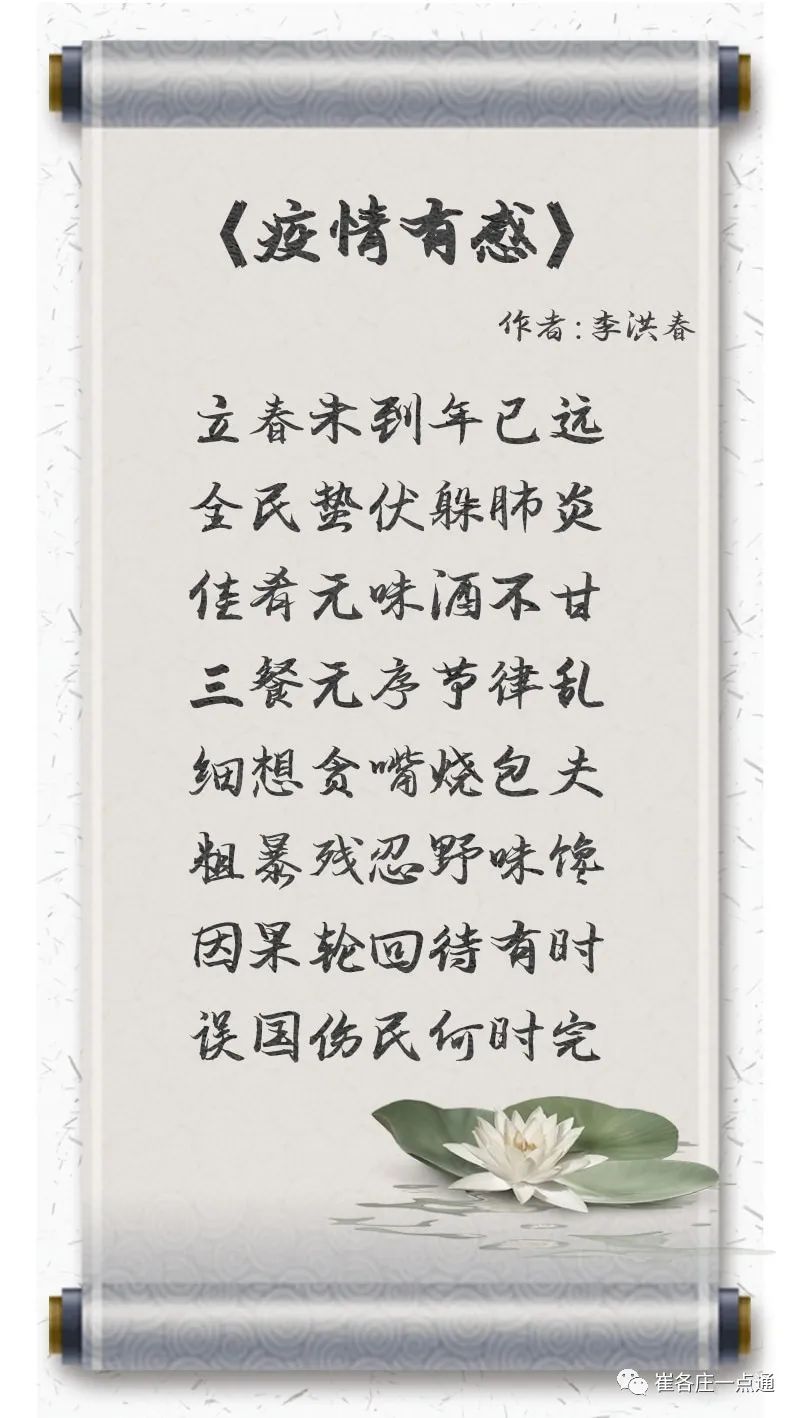 《疫情有感》
作者:李洪春
立春未到年已远
全民蛰伏躲肺炎
佳肴无味酒不甘
三餐无序节律乱
细想贪嘴烧包夫
粗暴残忍野味馋
因果轮回待有时
误国伤民何时完
崔各庄一点通